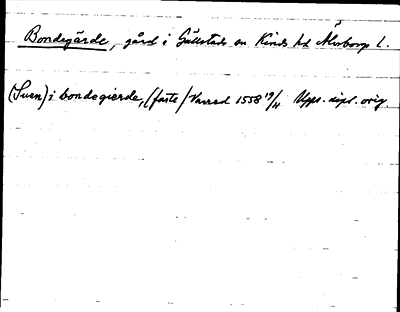 Bondegärde, gård i Gällstads sn Kinds hd Älvborgs l.
(Suen) i bondegierde, (faste / Varred 1558 19/11 Upps. dipl. orig.